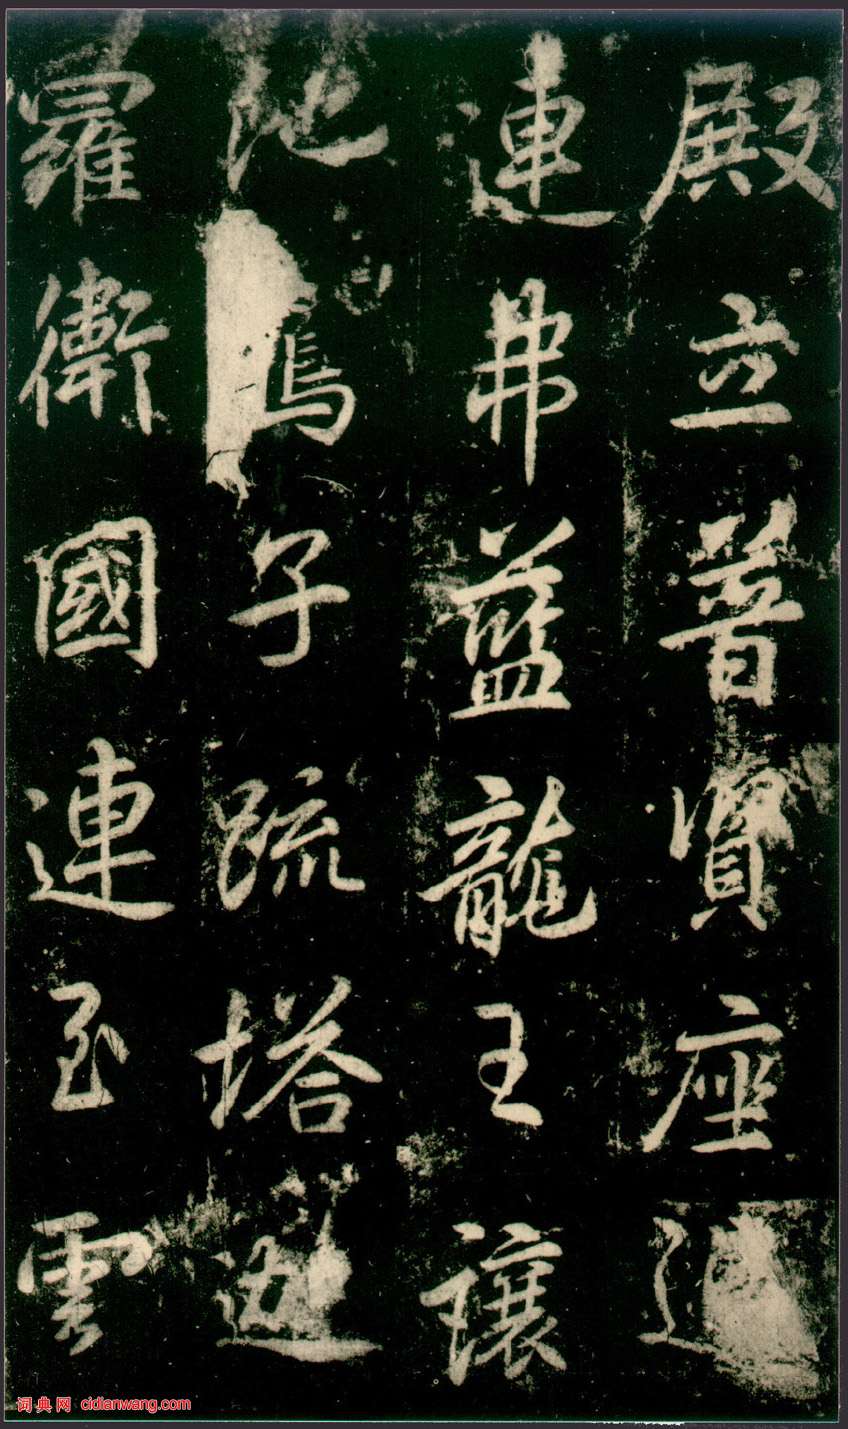 殿立普賢座
連弗藍龍王讓
地子疏塔迦
羅衛國連至雲
词典网 cidianwang.com